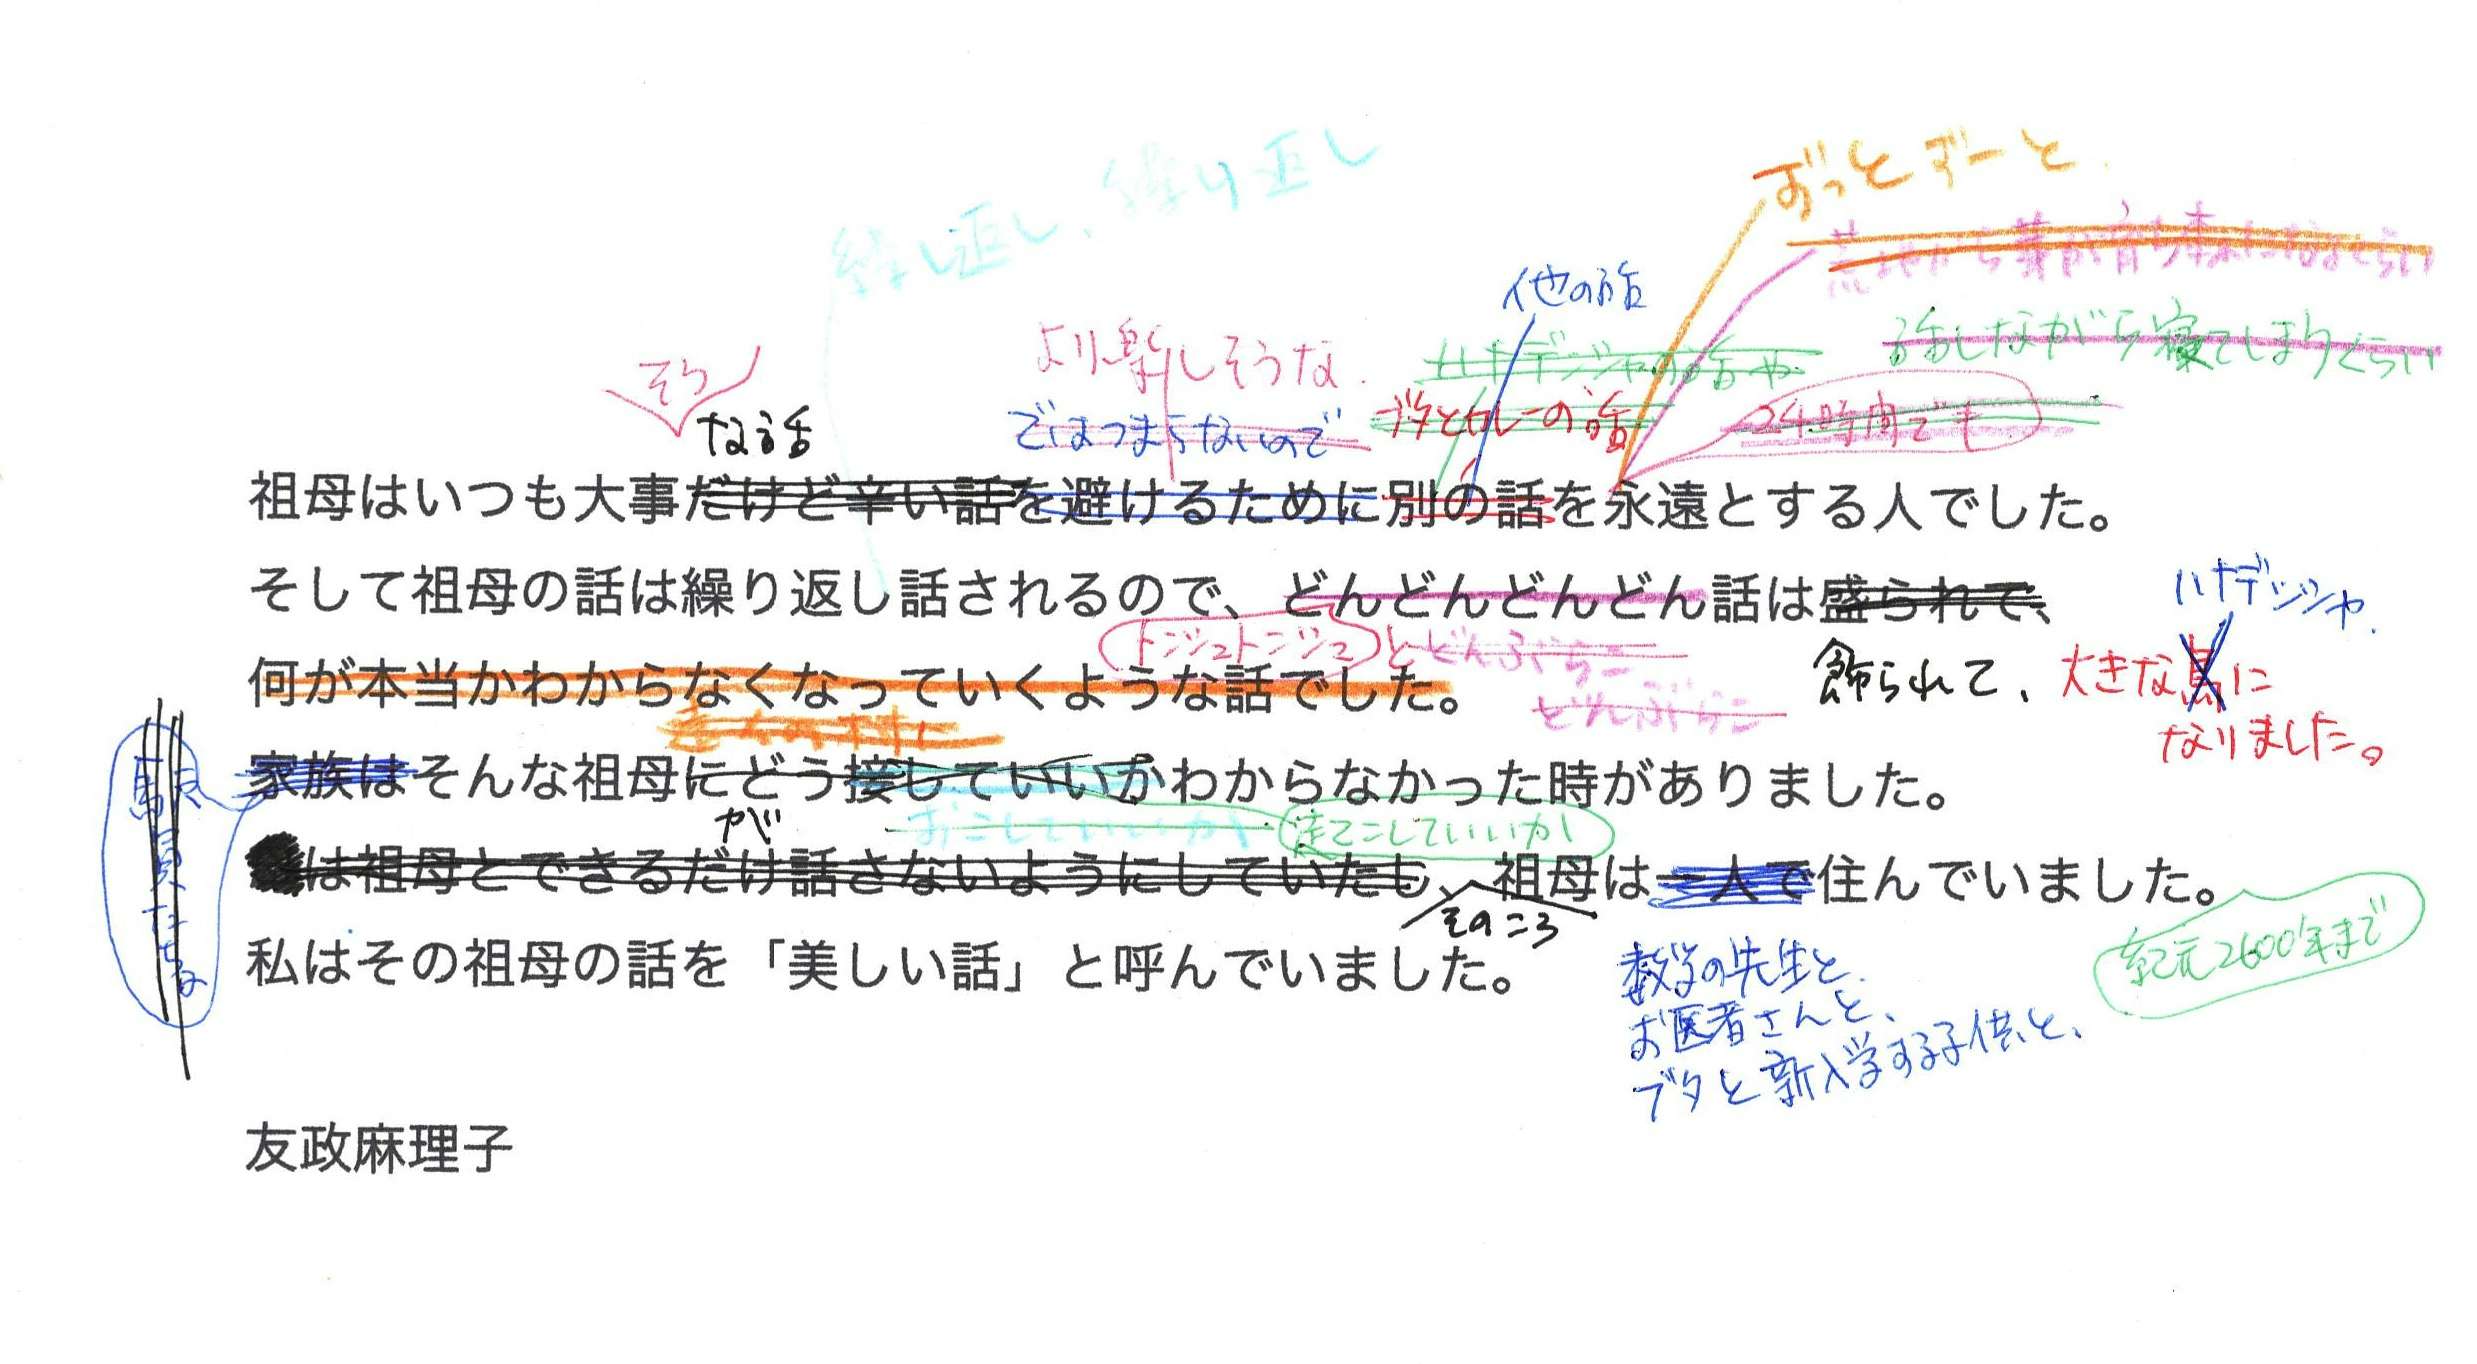 繰し返し、繰り返し
ずっとずーと.
他の話
話しながら寝てしまうくらい
より楽しそうな.
ハナデジジャの話や
そう
な話
ではつまらないので
ブタとカレーの話
24時間でも
祖母はいつも大事だけど辛い話を避けるために別の話を永遠とする人でした。
そして祖母の話は繰り返し話されるので、どんどんどんどん話は盛られて、
ハナデジジャ.
トジュトジュ と どんぶらこ
何が本当かわからなくなっていくような話でした。
どんぶらこ
飾られて、大きな鳥に
なりました。
家族はそんな祖母にどう接していいかわからなかった時がありました。
が
おこしていいか
捨てこしていいか
は祖母とできるだけ話さないようにしていたし、祖母は一人で住んでいました。
そのころ
紀元2600年まで
私はその祖母の話を「美しい話」と呼んでいました。
数学の先生と、
お医者さんと、
ブタと新入学する子供と、
友政麻理子